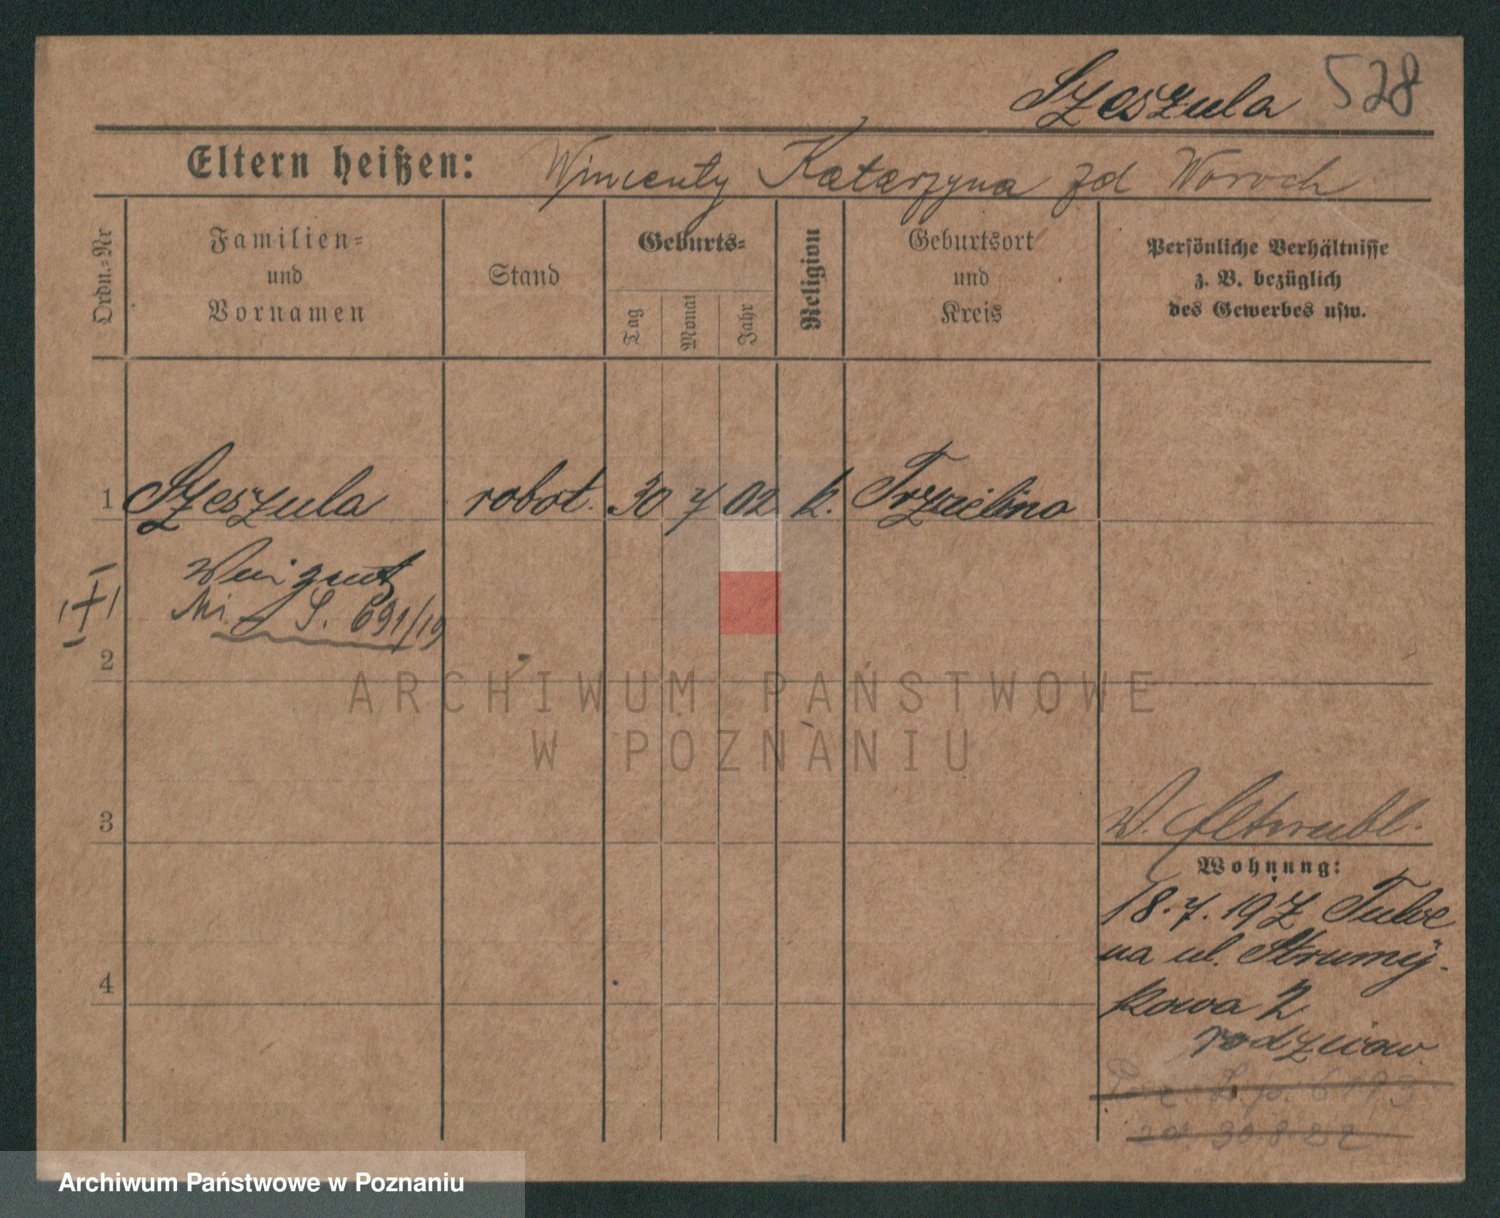 Szeszula 528
Eltern heißen: Wincenty Katarzyna zd Woroch
Ordn.=Nr
Familien=
und
Vornamen
Stand
Geburts=
Tag
Monat
Jahr
Religion
Geburtsort
und
Kreis
Persönliche Verhältnisse
z. B. bezüglich
des Gewerbes usw.
1 Szeszula robot. 30 7 02 k. Trzcielino
S. 691/19
2
ARCHIWUM PAŃSTWOWE
W POZNANIU
3
Wohnung:
18.7.19
na ul. Strumy-
kowa 2
rodziców
4
30.8.22
Archiwum Państwowe w Poznaniu